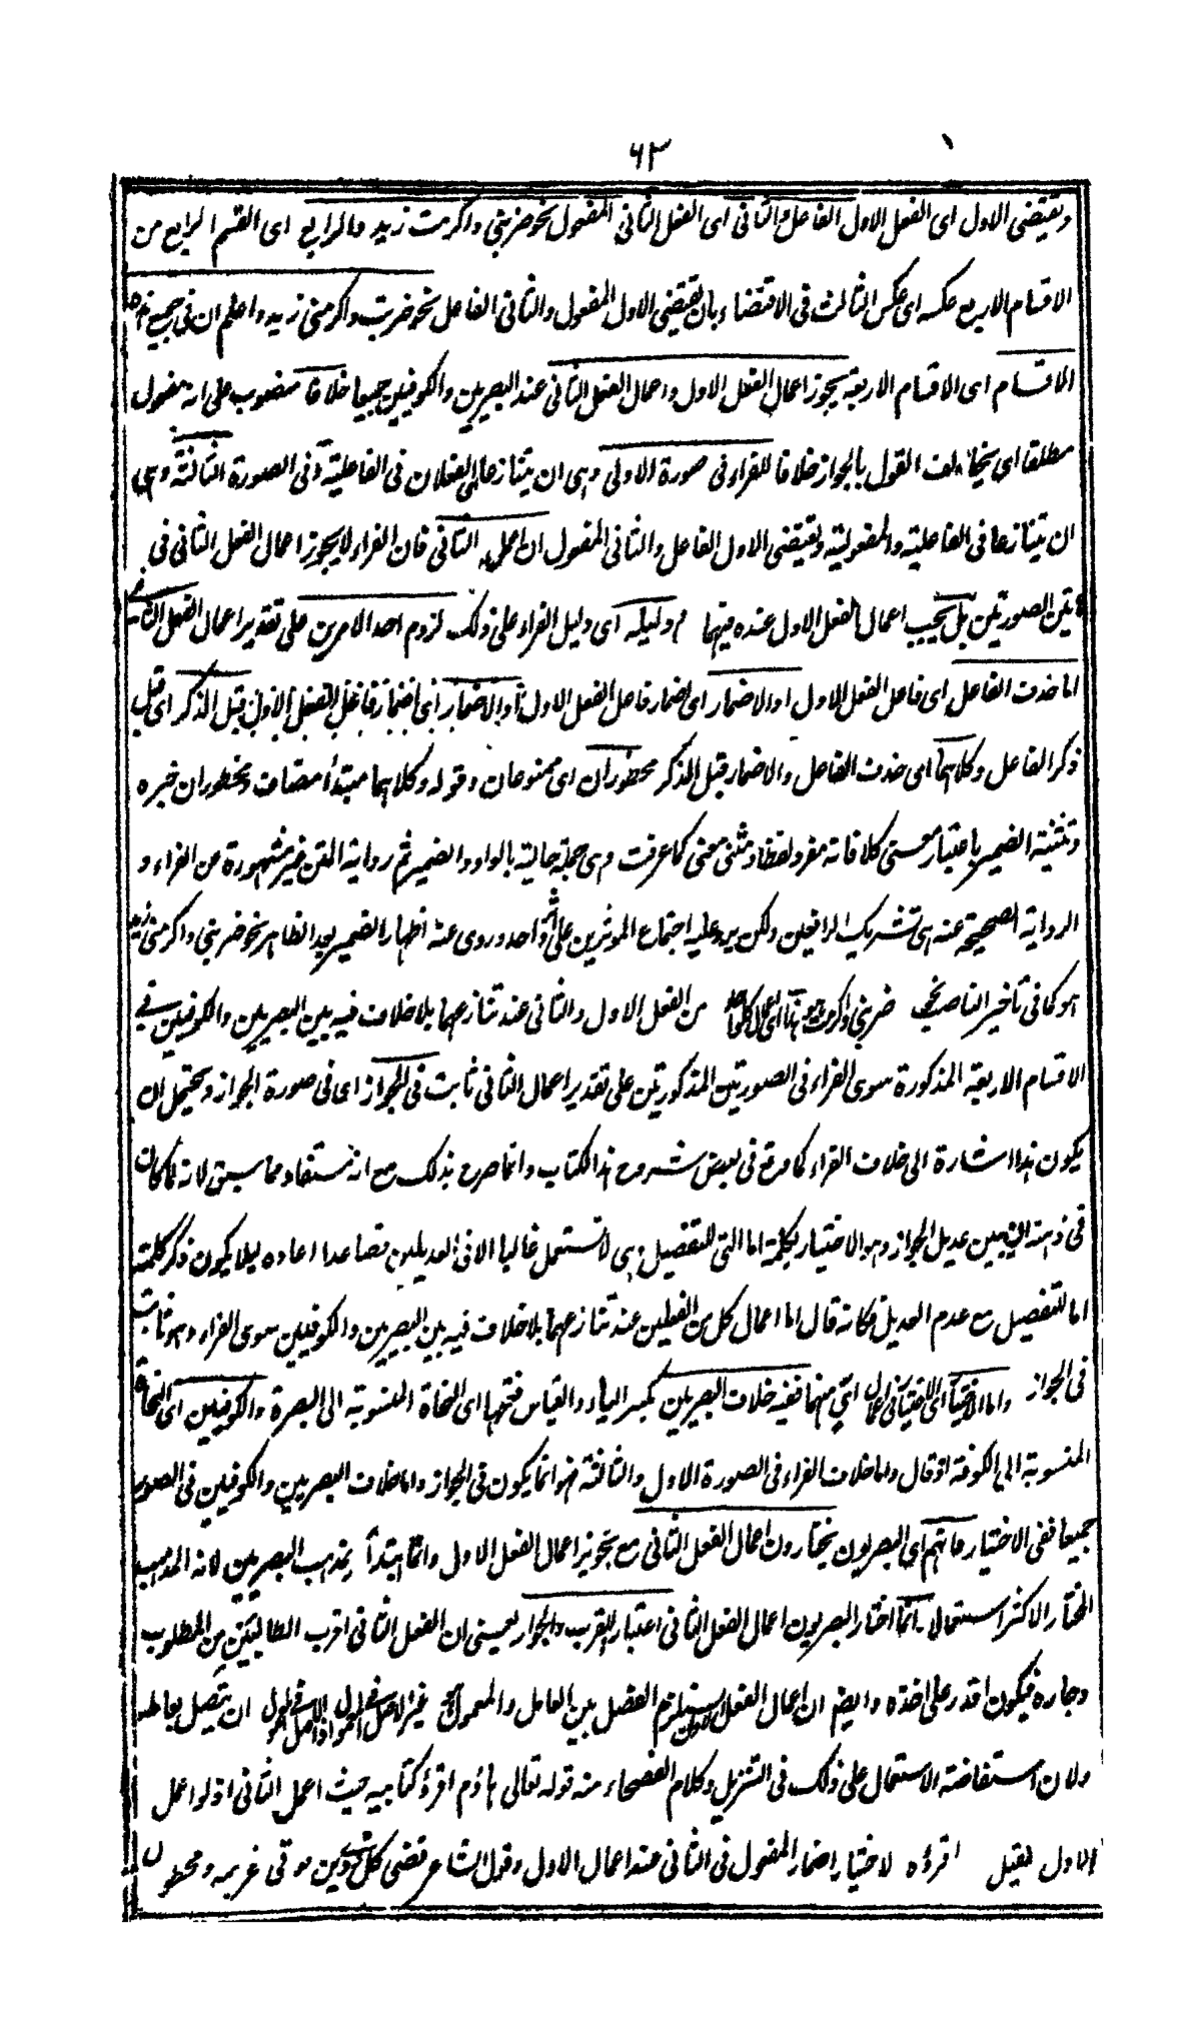 ٦٢
ويقتضى الاول اى الفعل الاول الفاعل والثانى اى الفعل الثانى المفعول نحو ضربنى واكرمت زيد والرابع اى القسم الرابع من
الاقسام الاربع عكسه اى عكس الثالث فى الاقتضاء بان يقتضى الاول المفعول والثانى الفاعل نحو ضربت واكرمنى زيد واعلم ان فى جميع هذه
الاقسام اى الاقسام الاربعة يجوز اعمال الفعل الاول واعمال الفعل الثانى عند البصريين والكوفيين جميعا خلافا منصوب على انه مفعول
مطلقا اى يخالف القول بالجواز خلافا للفراء فى صورة الاولى وهى ان يتنازعا اى الفعلان فى الفاعلية وفى الصورة الثالثة وهى
ان يتنازعا فى الفاعلية والمفعولية ويقتضى الاول الفاعل والثانى المفعول ان اعمل الثانى فان الفراء لا يجوز اعمال الفعل الثانى فى
هاتين الصورتين بل يجب اعمال الفعل الاول عنده فيهما ودليله اى دليل الفراء على ذلك لزوم احد الامرين على تقدير اعمال الفعل الثانى
اما حذف الفاعل اى فاعل الفعل الاول او الاضمار اى اضمار فاعل الفعل الاول او الاضمار اى اضمار فاعل الفعل الاول قبل الذكر اى قبل
ذكر الفاعل وكلاهما اى حذف الفاعل والاضمار قبل الذكر محظوران اى ممنوعان وقوله وكلاهما مبتدأ مضاف ومحظوران خبره
وتثنية الضمير باعتبار معنى كلا فانه مفرد لفظا ومثنى معنى كما عرفت وهى جملة حالية بالواو والضمير ثم رواية المتن غير مشهورة عن الفراء و
الرواية الصحيحة عنه هى تشريك الرافعين ولكن يرد عليه اجتماع الموثرين على اثر واحد وروى عنه اظهار الضمير بعد الظاهر نحو ضربنى واكرمنى زيد
هو كما فى تأخير الناصب نحو ضربنى واكرمت زيدا هو من الفعل الاول والثانى عند تنازعهما بلا خلاف فيه بين البصريين والكوفيين فى
الاقسام الاربعة المذكورة سوى الفراء فى الصورتين المذكورتين على تقدير اعمال الثانى ثابت فى الجواز اى فى صورة الجواز ويحتمل ان
يكون هذا اشارة الى خلاف الفراء كما وقع فى بعض شروح هذا الكتاب وانما صرح بذلك مع انه مستفاد مما سبق لانه لما كان
فى ذهنه ان يبين عديل الجواز وهو الاختيار بكلمة اما التى للتفصيل وهى لا تستعمل غالبا الا فى العديلين فصاعدا اعاده ليلا يكون ذكر كلمة
اما للتفصيل مع عدم العديل فكانه قال اما اعمال كل من الفعلين عند تنازعهما بلا خلاف فيه بين البصريين والكوفيين سوى الفراء وهو ثابت
فى الجواز واما الاختيار اى الاختيار فى اعمال اى منهما ففيه خلاف البصريين بكسر الباء والقياس فتحها اى النحاة المنسوبة الى البصرة والكوفيين اى النحاة
المنسوبة الى الكوفة اذ قال واما خلاف الفراء فى الصورة الاولى والثالثة فهو انما يكون فى الجواز واما خلاف البصريين والكوفيين فى الصور
جميعا ففى الاختيار فانهم اى البصريون يختارون اعمال الفعل الثانى مع تجويز اعمال الفعل الاول وانما ابتدأ بمذهب البصريين لانه المذهب
المختار الاكثر استعمالا انما اختار البصريون اعمال الفعل الثانى اعتبار القرب والجوار يعنى ان الفعل الثانى اقرب الطالبين من المطلوب
وجاره فيكون اقدر على اخذه وايضم ان اعمال الفعل الاول يستلزم الفصل بين العامل والمعمول ان يتصل بعامله
ولان استفاضة الاستعمال على ذلك فى التنزيل وكلام الفصحاء منه قوله تعالى هاؤم اقرؤا كتابيه حيث اعمل الثانى اذ لو اعمل
الاول لقيل اقرؤه لاختيار اضمار المفعول فى الثانى عند اعمال الاول وقول الشاعر قضى كل ذى دين فوفى غريمه وممطول